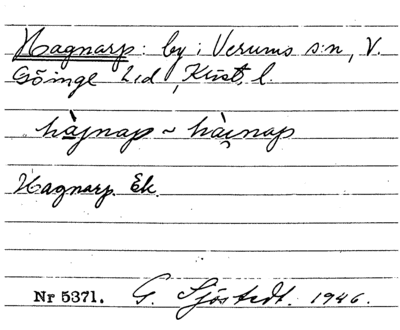 Hagnarp: by i Verums s:n, V.
Göinge h:d, Krist. l.
hàjnap ~ hài̯nap
Hagnarp. Ek.
Nr 5371. G. Sjöstedt. 1946.